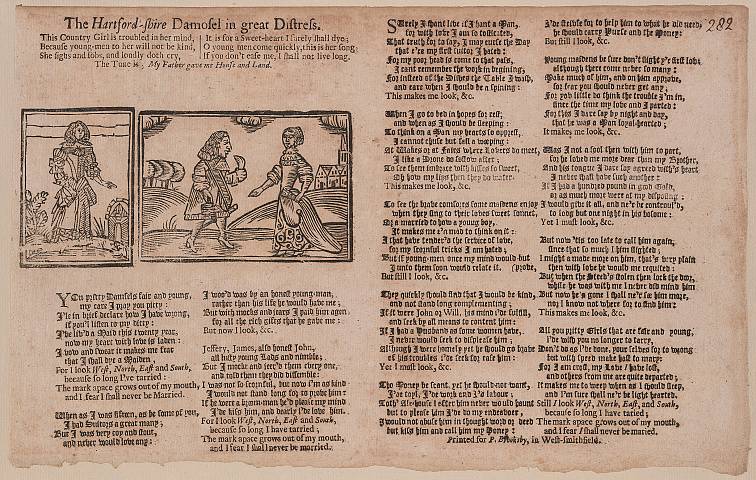 The Hartford-shire Damosel in great Distress.
This Country Girl is troubled in her mind,
Because young-men to her will not be kind,
She sighs and sobs, and loudly doth cry,
It is for a Sweet-heart I surely shall dye;
O young men come quickly, this is her song
If you don't ease me, I shall not live long.
The Tune is, My Father gave me House and Land.
282
YOu pretty Damsels fair and young,
my care I pray you pitty:
I'le in brief declare how I have wrong,
if you'l listen to my ditty:
I've liv'd a Maid this twenty year,
now my heart with love is laden:
I vow and swear it makes me fear
that I shall dye a Maiden,
For I look West, North, East and South,
because so long I've tarried:
The mark space grows out of my mouth,
and I fear I shall never be Married.
When as I was fifteen, as be some of you,
I had Suitors a great many;
But I was very coy and stout,
and never would love any:
I woo'd was by an honest young-man,
rather than his life he would have me;
But with mocks and jears I paid him agen
for all the rich gifts that he gave me:
But now I look, &c.
Jeffery, James, also honest John,
all lusty young Lads and nimble;
But I mockt and jeer'd them every one,
and told them they did dissemble:
I was not so scornful, but now I'm as kind
I would not stand long for to prove him:
If he were a brown-man he'd please my mind
I'de kiss him, and dearly I'de love him.
For I look West, North, East and South,
because so long I have tarried;
The mark space grows out of my mouth,
and I fear I shall never be married.
SUrely I shant live if I hant a Man,
for with love I am so
That truth for to say, I may curse the Day
that e're my first suitor I heard:
For my poor head is come to that pass,
I cant remember the work in
For instead of the Dishes the Table I wash,
and care when I should be a spining:
This makes me look, &c.
When I go to bed in hopes for rest,
and when as I should be sleeping:
To think on a Man my hearts so opprest,
I cannot chuse but fall a weeping:
At Wakes or at Fairs where Lovers do meet,
I like a Mome do follow after;
To see them imbrace with kisses so sweet,
Oh how my lips then they do water.
This makes me look, &c.
To see the brave comforts some maidens enjoy
when they sing to their loves sweet sonnet,
Or a married to a young boy,
It makes me e'n mad to think on it:
I that have tender'd the service of love,
for my scornful tricks I am hated
But if young-men once my mind would but
I unto them soon would relate it. (prove,
But still I look, &c.
They quickly should find that I would be kind,
and not stand long complementing;
If it were John or Will, his mind i'de fulfill,
and seek by all means to content him:
If I had a Husband as some women have,
I never would seek to displease him;
Although I were homely yet he should go brave
of his troubles i'de seek for to ease him:
Yet I must look, &c.
Tho Money be scant, yet he should not want,
I've toyl, I've work and I've labour;
Toth' Ale-house I after him never would haunt
but to please him I'de do my endeavour,
I would not abuse him in thought word or deed
but kiss him and call him my Honey:
I'de strive for to help him to what he did need,
he should carry Purse and the Money:
But still I look, &c.
Young maidens be sure don't slight y'r first love
although there come never so many:
Make much of him, and on him approve,
for fear you should never get any;
For you little do think the trouble I'm in,
since the time my love and I parted:
For this I dare say by night and day,
that he was a Man loyal-hearted;
It makes me look, &c.
Was I not a fool then with him to part,
for he loved me more dear than my Mother,
And his tongue I dare say agreed with's heart
I never shall have such another:
If I had a hundred pound in good Gold,
or as much more were at my disposing:
I would give it all, and ne'r be controul'd,
to lodg but one night in his bosome:
Yet I must look, &c.
But now 'tis too late to call him again,
since that so much I him slighted;
I might a made more on him, that's very plain
then with love he would me requited:
But when the Steed's stolen then lock the door,
while he was with me I never did mind him
But now he's gone I shall ne'r see him more,
nor I know not where for to find him:
This makes me look, &c.
All you pritty Girls that are fair and young,
I'de wish you no longer to tarry,
Don't do as I've done, your selves for to wrong
but with speed make hast to marry:
For I am crost, my Love I have lost,
and others from me are quite departed;
It makes me to weep when as I should sleep,
and I'm sure that ne'r be light hearted.
Still I look West, North, East, and South,
because so long I have tarried;
The mark space grows out of my mouth,
and I fear I shall never be maried.
Printed for P. Brooksby, in West-smithfield.